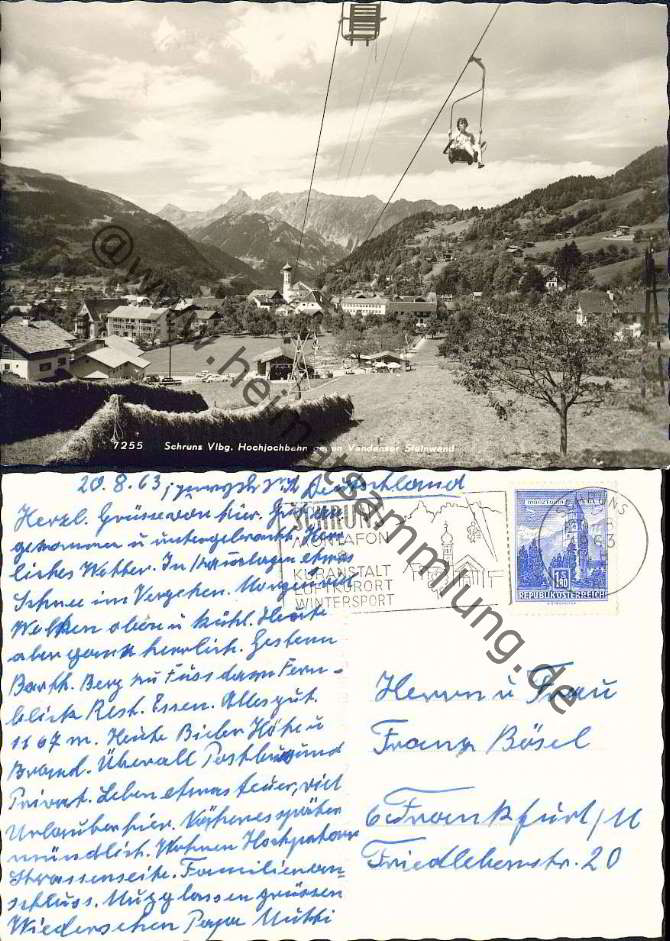 7255 Schruns Vlbg. Hochjochbahn gegen Vandanser Steinwand
@www.heimatsammlung.de
20.8.63,
Herzl. Grüsse von hier. Gut an-
gekommen u untergebracht.
liches Wetter. In etwas
Schnee im Vergehen. Morgens
Wolken oben u kühl. Heute
aber ganz herrlich. Gestern
Barth. Berg zu Fuss dann Fern-
blick Rest. Essen. Alles gut.
1167 m. Heute Bieler Höhe u
Brand. Überall Postbus und
Privat. Leben etwas teuer, viel
Urlauber hier. Näheres später
mündlich. Wohnen Hochjoch
Strassenseite. Familienan-
schluss. Mugg lassen grüssen
Wiedersehen Papa Mutti
SCHRUNS
MONTAFON
KURANSTALT
LUFTKURORT
WINTERSPORT
SCHRUNS
63
REPUBLIK ÖSTERREICH
Herrn u Frau
Franz Bösel
6 Frankfurt/M
Friedlebenstr. 20